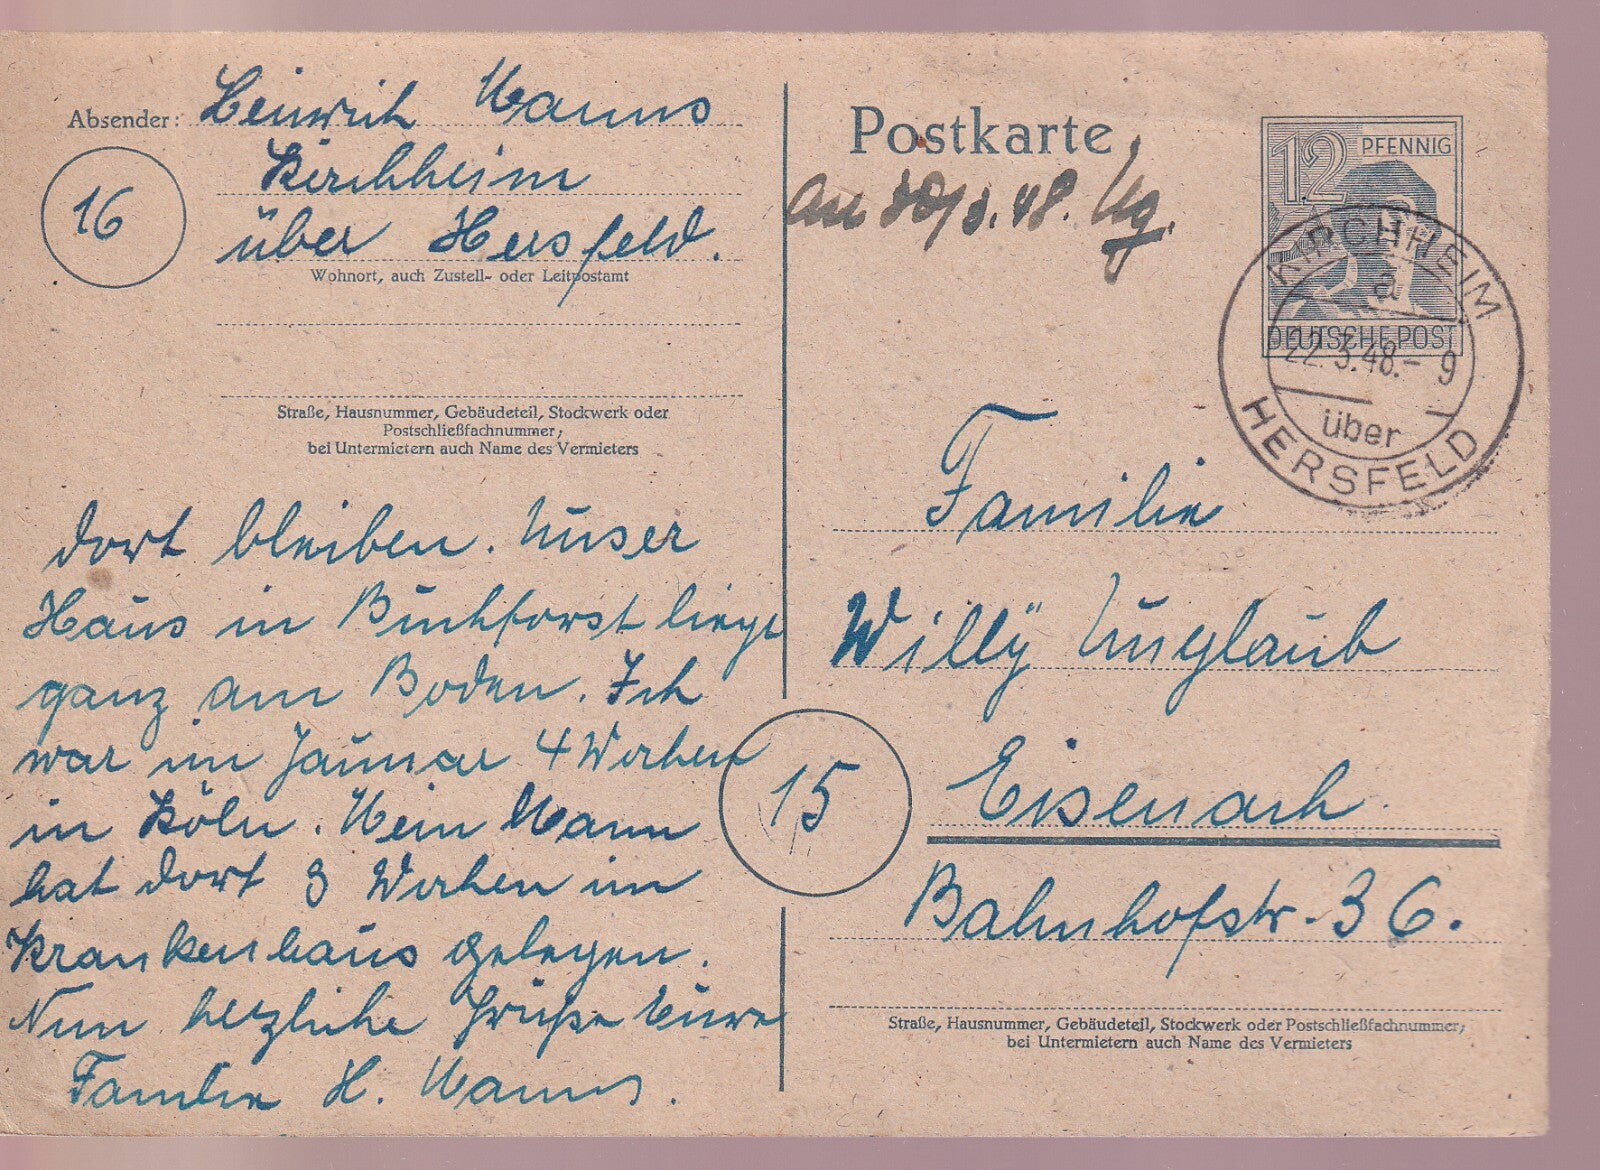 Absender: Heinrich Manns
Kirchheim
16
über Hersfeld.
Wohnort, auch Zustell- oder Leitpostamt
Straße, Hausnummer, Gebäudeteil, Stockwerk oder
Postschließfachnummer;
bei Untermietern auch Name des Vermieters
dort bleiben. Unser
Haus in Buchforst liegt
ganz am Boden. Ich
war im Januar 4 Wochen
in Köln. Mein Mann
hat dort 3 Wochen im
Krankenhaus gelegen.
Nun herzliche Grüße Eure
Familie H. Manns.
Postkarte
an 30/3.48.
12 PFENNIG
DEUTSCHE POST
KIRCHHEIM
a
22.3.48.- 9
über
HERSFELD
Familie
Willy Unglaub
15
Eisenach
Bahnhofstr. 36.
Straße, Hausnummer, Gebäudeteil, Stockwerk oder Postschließfachnummer;
bei Untermietern auch Name des Vermieters